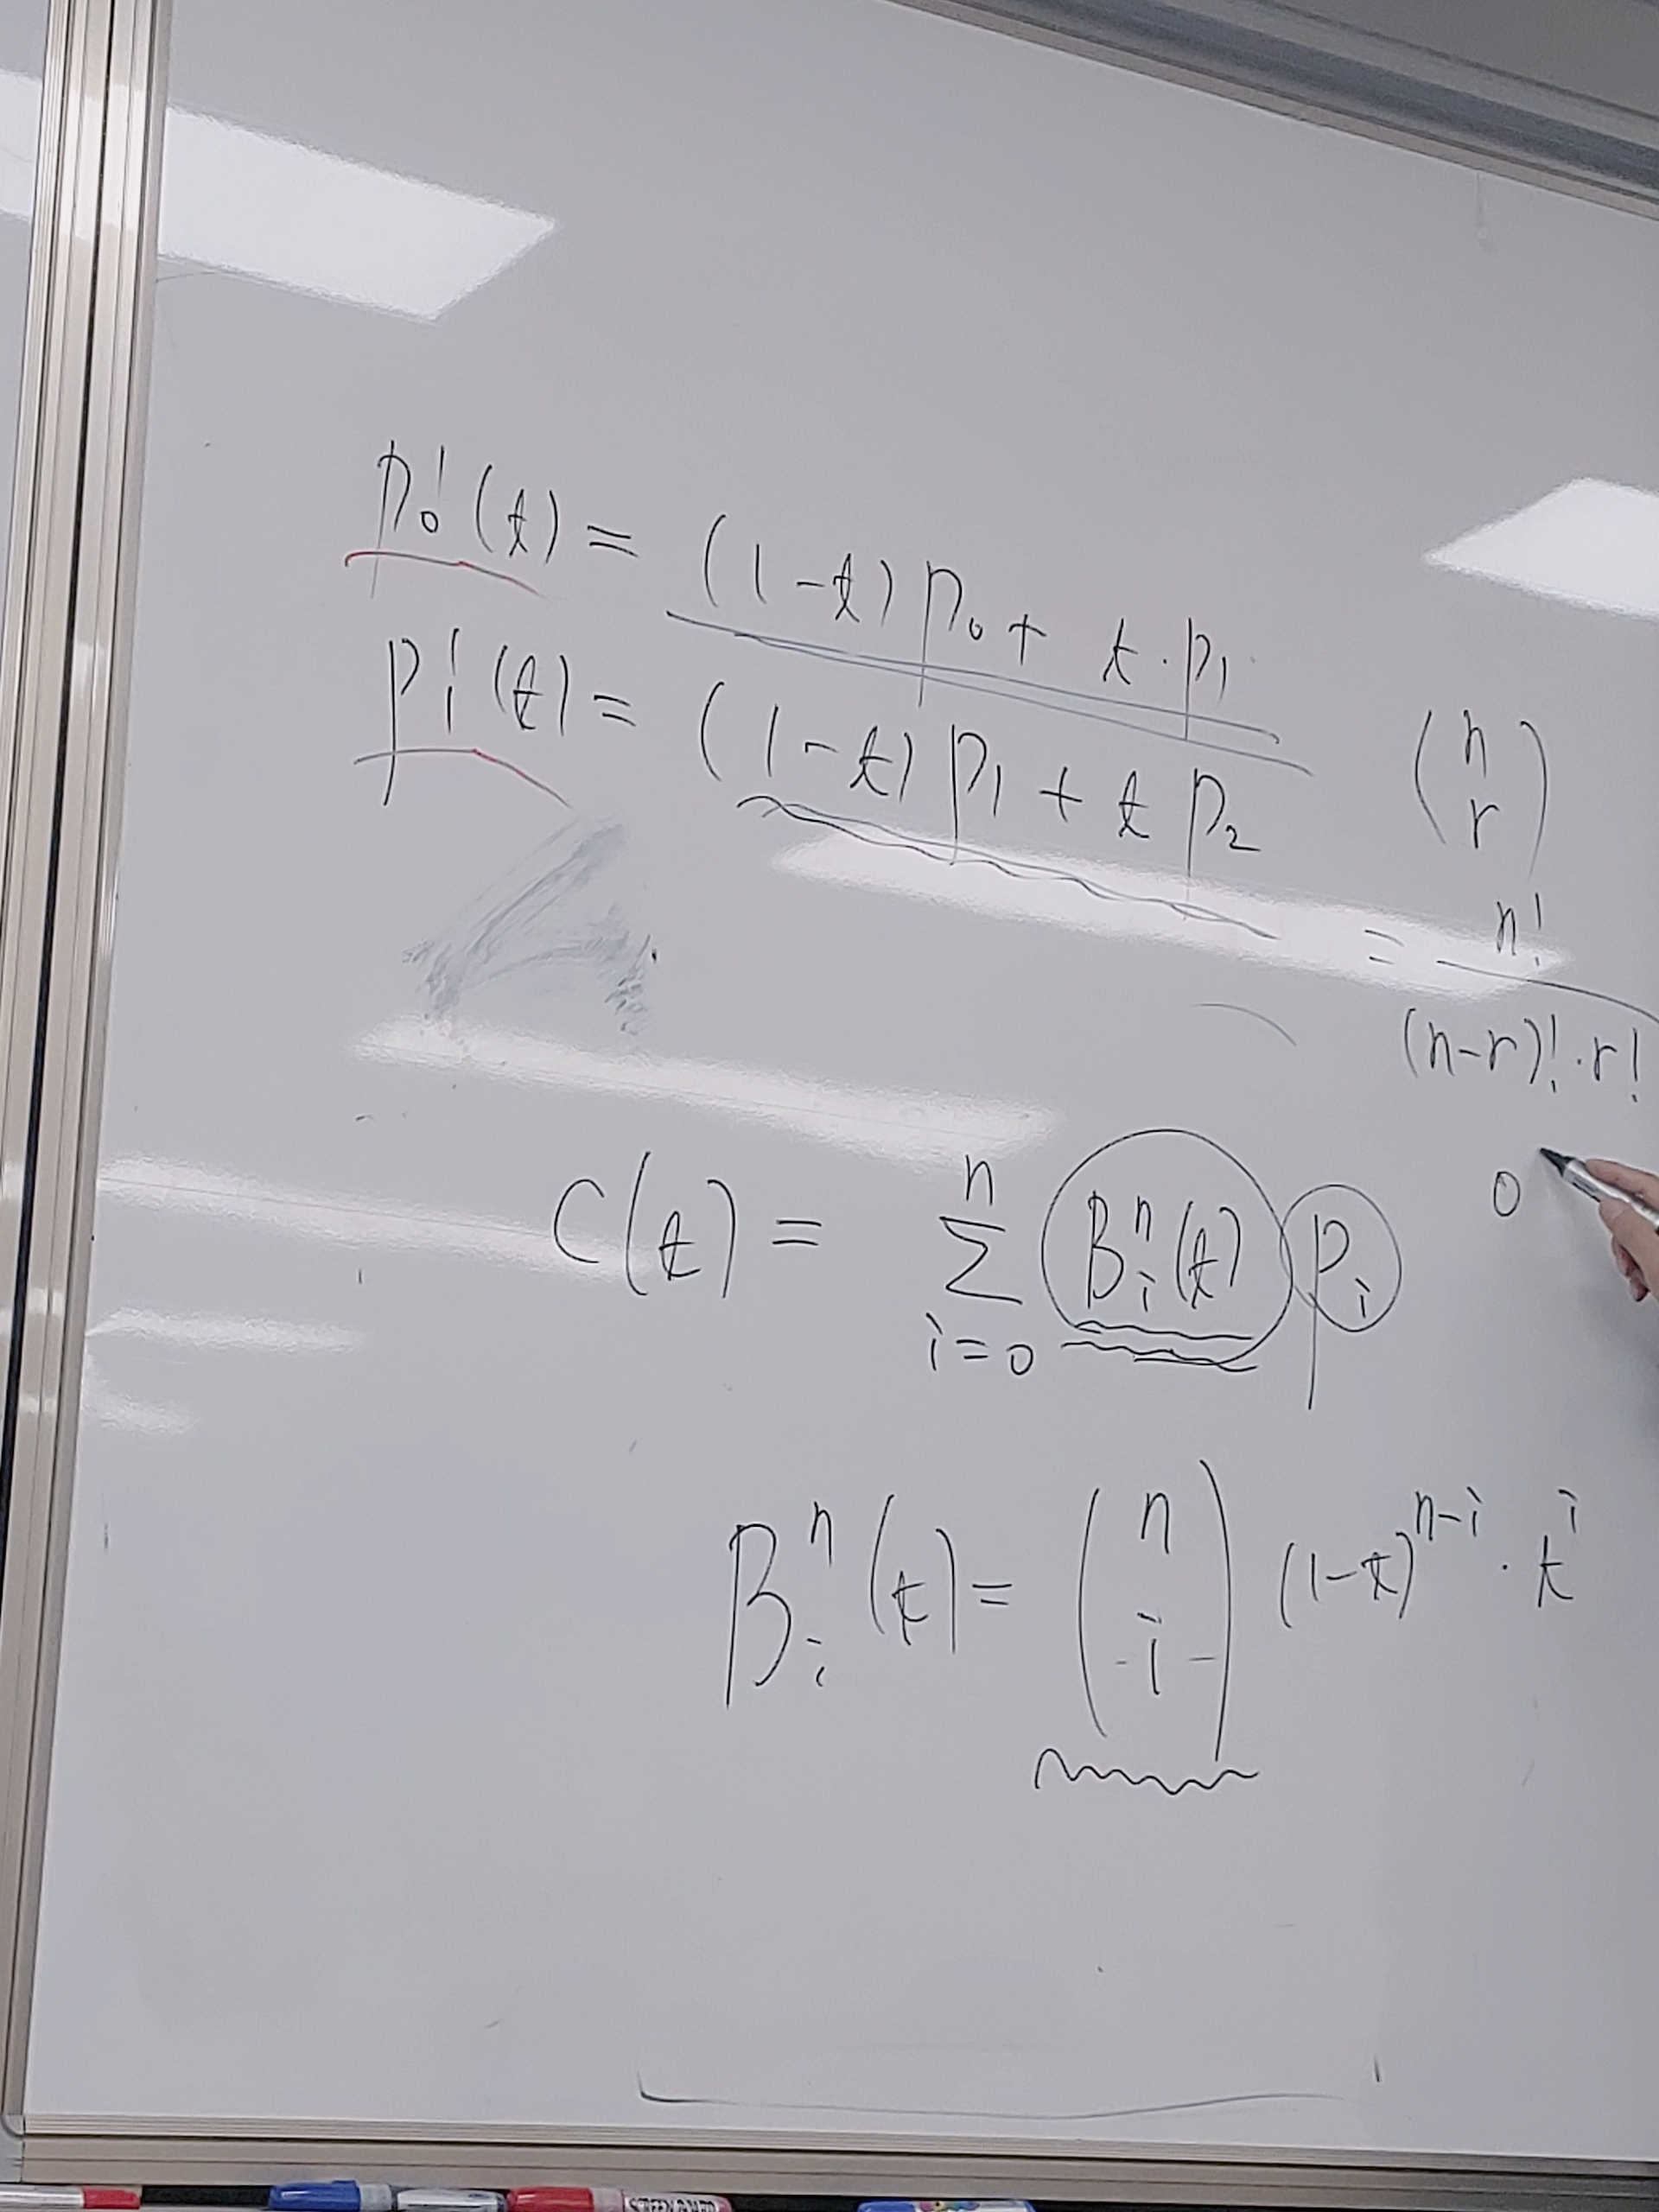 p₀¹(t) = (1-t) p₀ + t · p₁
p₁¹(t) = (1-t) p₁ + t p₂
(n r)
= n! / (n-r)! · r!
0
C(t) = Σ n i=0 Bᵢⁿ(t) pᵢ
Bᵢⁿ(t) = (n i) (1-t)ⁿ⁻ⁱ · tⁱ